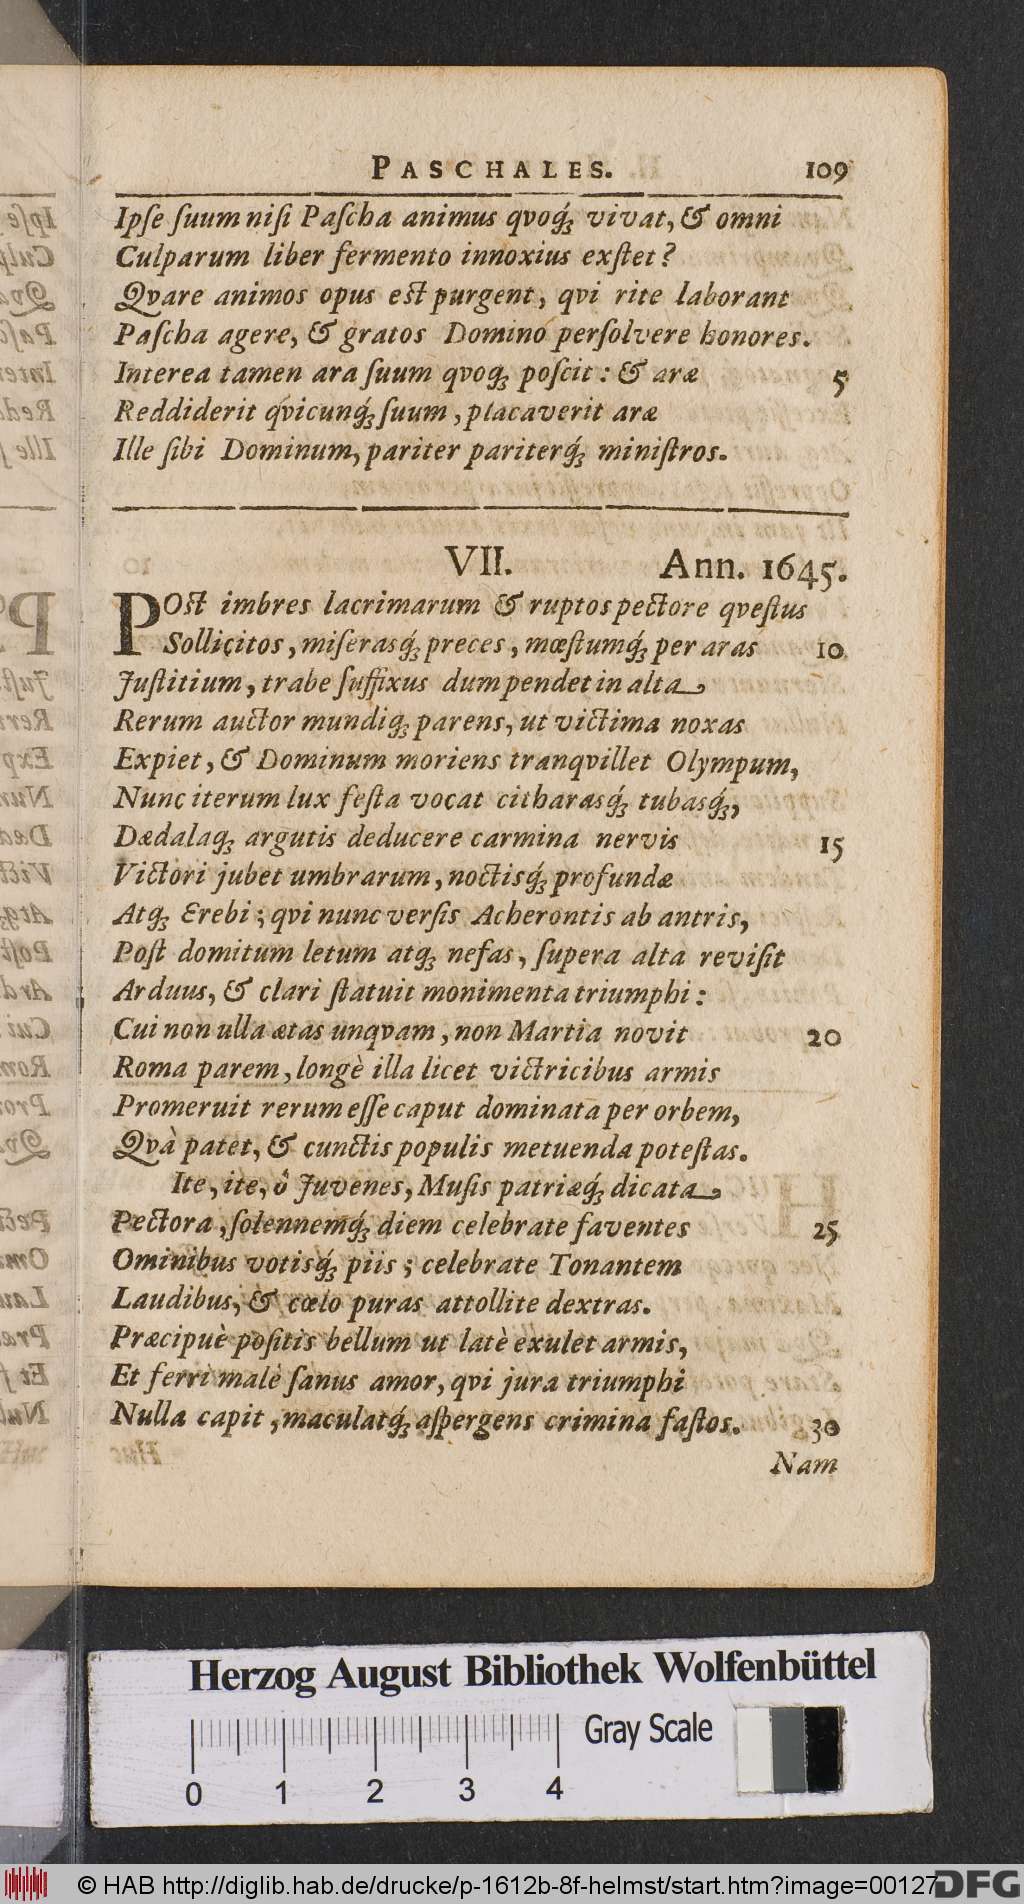 PASCHALES. 109
Ipſe ſuum niſi Paſcha animus qvoq́ꝫ vivat, & omni
Culparum liber fermento innoxius exſtet?
Qvare animos opus est purgent, qvi rite laborant
Paſcha agere, & gratos Domino perſolvere honores.
Interea tamen ara ſuum qvoqꝫ poſcit: & aræ 5
Reddiderit qvicunq́ꝫ ſuum, placaverit aræ
Ille ſibi Dominum, pariter pariterq́ꝫ miniſtros.
VII. Ann. 1645.
POst imbres lacrimarum & ruptos pectore qveſtus
Sollicitos, miſerasq́ꝫ preces, mœſtumq́ꝫ per aras 10
Juſtitium, trabe ſuffixus dum pendet in alta,
Rerum auctor mundiqꝫ parens, ut victima noxas
Expiet, & Dominum moriens tranqvillet Olympum,
Nunc iterum lux feſta vocat citharasq́ꝫ tubasq́ꝫ,
Dædalaqꝫ argutis deducere carmina nervis 15
Victori jubet umbrarum, noctisq́ꝫ profundæ
Atqꝫ Erebi; qvi nunc verſis Acherontis ab antris,
Poſt domitum letum atqꝫ nefas, ſupera alta reviſit
Arduus, & clari ſtatuit monimenta triumphi:
Cui non ulla ætas unqvam, non Martia novit 20
Roma parem, longè illa licet victricibus armis
Promeruit rerum eſſe caput dominata per orbem,
Qvà patet, & cunctis populis metuenda poteſtas.
Ite, ite, ô Juvenes, Muſis patriæq́ꝫ dicata,
Pectora, ſolennemq́ꝫ diem celebrate faventes 25
Ominibus votisq́ꝫ piis; celebrate Tonantem
Laudibus, & cœlo puras attollite dextras.
Præcipuè poſitis bellum ut latè exulet armis,
Et ferri malè ſanus amor, qvi jura triumphi
Nulla capit, maculatq́ꝫ aſpergens crimina faſtos. 30
Nam
Herzog August Bibliothek Wolfenbüttel
Gray Scale
0 1 2 3 4
© HAB http://diglib.hab.de/drucke/p-1612b-8f-helmst/start.htm?image=00127
DFG